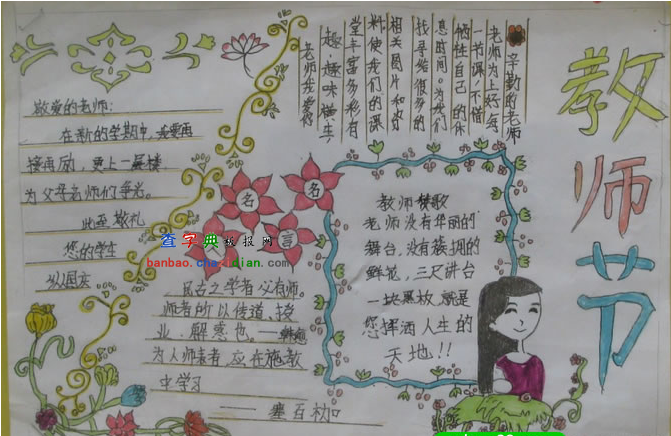 教师节
辛勤的老师
老师为上好每
一节课,不惜
牺牲自己的休
息时间。为我们
找寻给很多的
相关图片和资
料,使我们的课
堂丰富多彩有
趣,趣味横生,
老师我爱你
敬爱的老师:
在新的学期中,我要再
接再励,更上一层楼
为父母老师们争光。
此至敬礼
您的学生
名
名
人
言
查字典板报网
banbao.chazidian.com
古之学者必有师。
师者所以传道,授
业,解惑也。——韩愈
为人师表者,应在施教
中学习
教师赞歌
老师没有华丽的
舞台,没有簇拥的
鲜花,三尺讲台
一块黑板就是
您挥洒人生的
天地!!